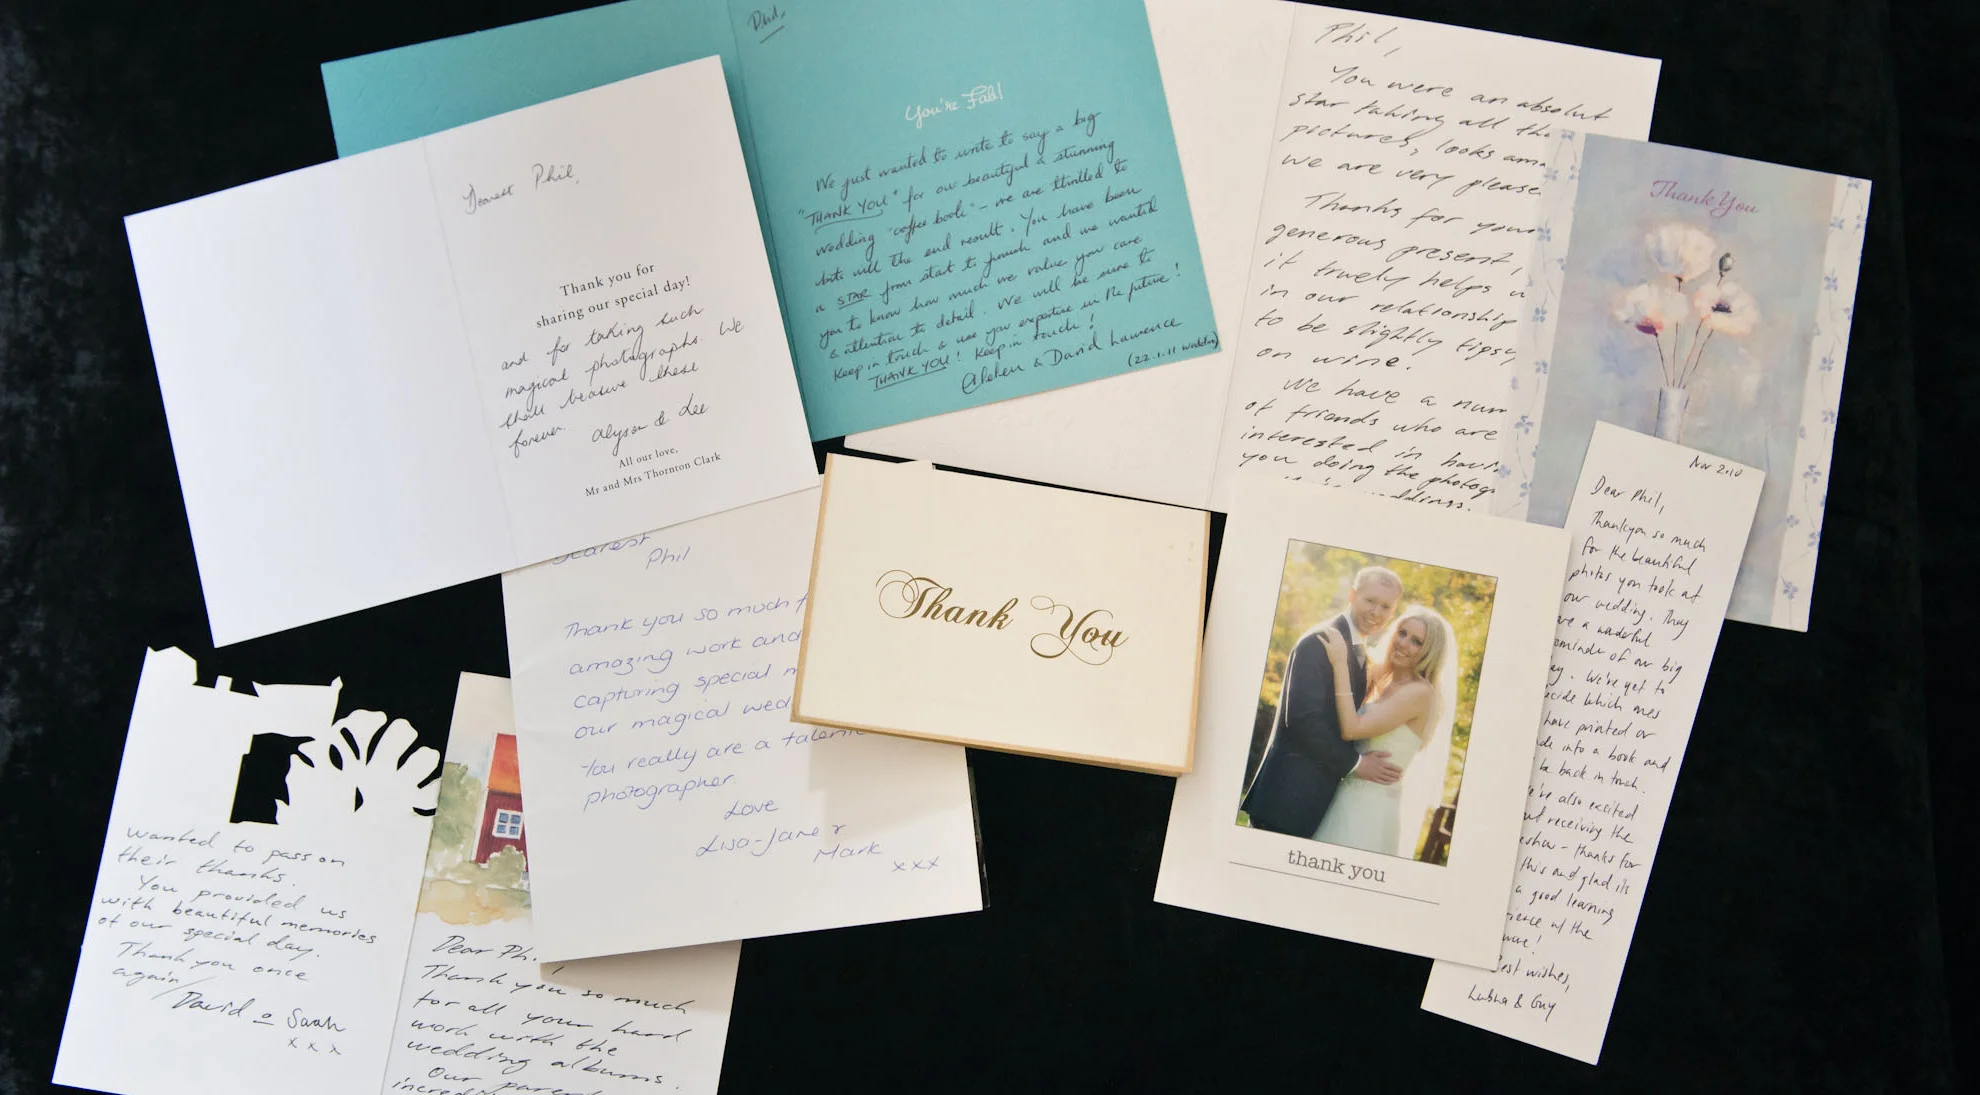 Dearest Phil,
Thank you for
sharing our special day!
and for taking such
magical photographs. We
shall treasure these
forever.
Alyson & Lee
All our love,
Mr and Mrs Thornton Clark
Phil,
You're Fab!
We just wanted to write to say a big
"THANK YOU" for our beautiful & stunning
wedding "coffee book" - we are thrilled to
bits with the end result. You have been
a STAR from start to finish and we wanted
you to know how much we value your care
& attention to detail. We will be sure to
keep in touch & use your expertise in the future!
THANK YOU! Keep in touch!
& David Lawrence
(22.1.11 wedding)
Phil,
You were an absolut
star taking all the
pictures, looks ama
we are very please
Thanks for your
generous present,
it truely helps u
in our relationship
to be slightly tipsy
on wine.
We have a num
of friends who are
interested in havi
you doing the photog
Thank You
Nov 2010
Dear Phil,
Thankyou so much
for the beautiful
photos you took at
our wedding. They
ve a wonderful
eminder of our big
ay. We've yet to
ecide which ones
have printed or
de into a book and
be back in touch.
e're also excited
ut receiving the
eshow - thanks for
this and glad its
a good learning
rience w/ the
Best wishes,
Lubna & Guy
Dearest
Phil
Thank you so much f
amazing work and
capturing special m
our magical wed
You really are a talent
photographer.
Love
Lisa-Jane &
Mark
xxx
Thank You
thank you
wanted to pass on
their thanks.
You provided us
with beautiful memories
of our special day.
Thank you once
again
David & Sarah
x x x
Dear Ph
Thank you so much
for all your hard
work with the
wedding albums.
Our paren
incred